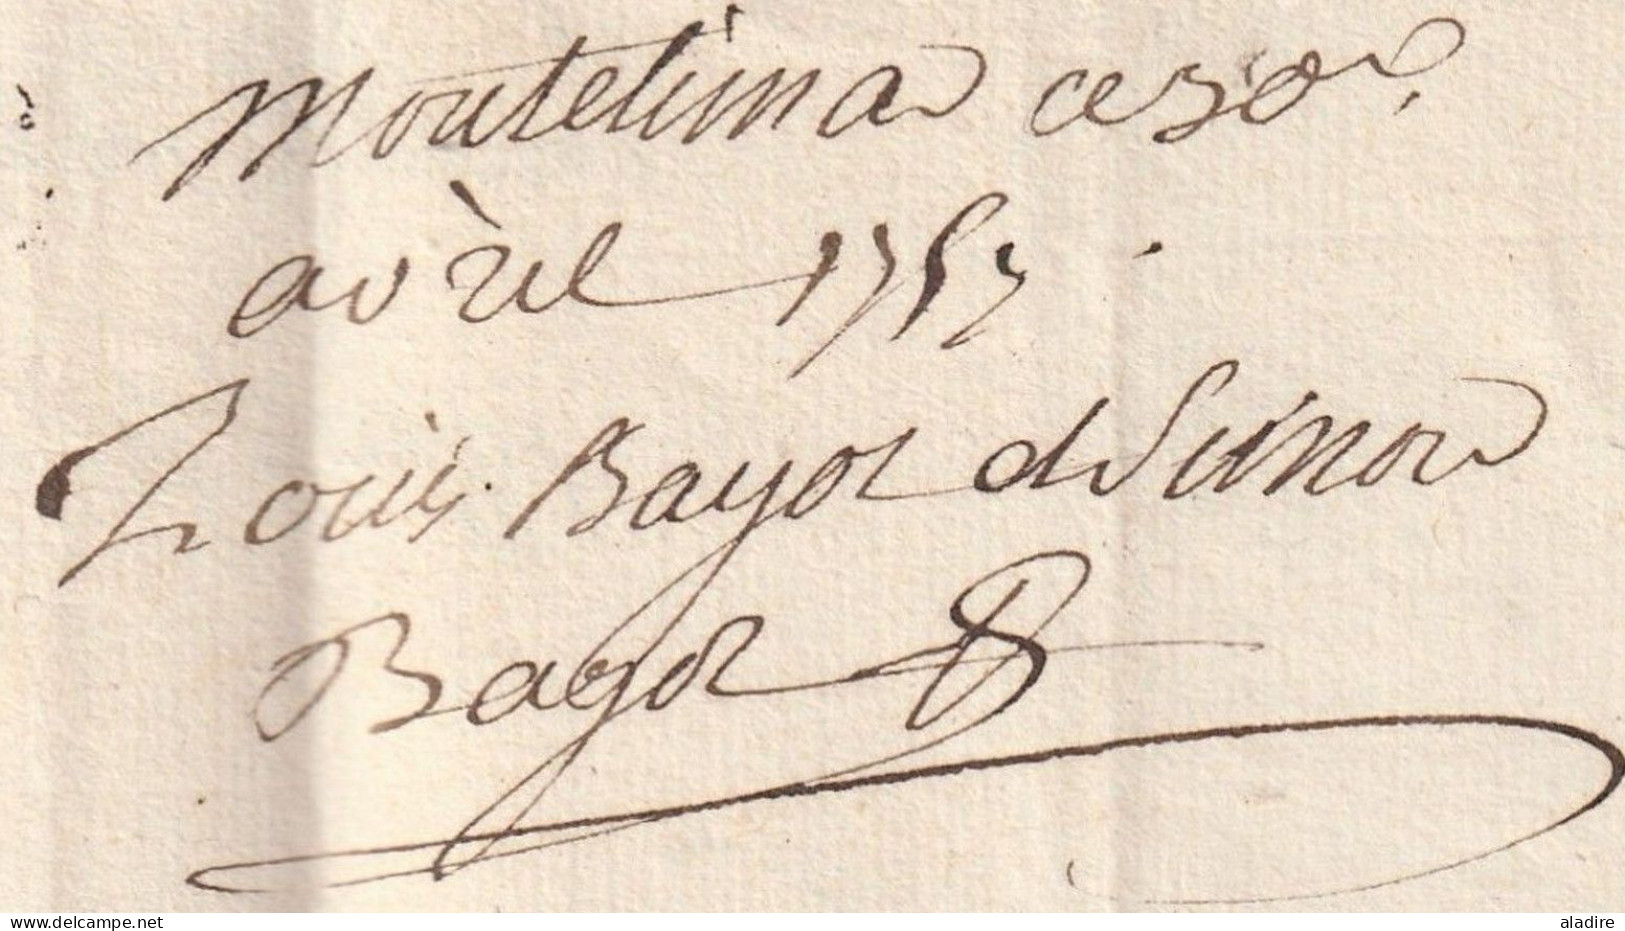 Montelimar ce 30e
avril 1757.
Louis Bayol
Bayol
delcampe.net
aladire